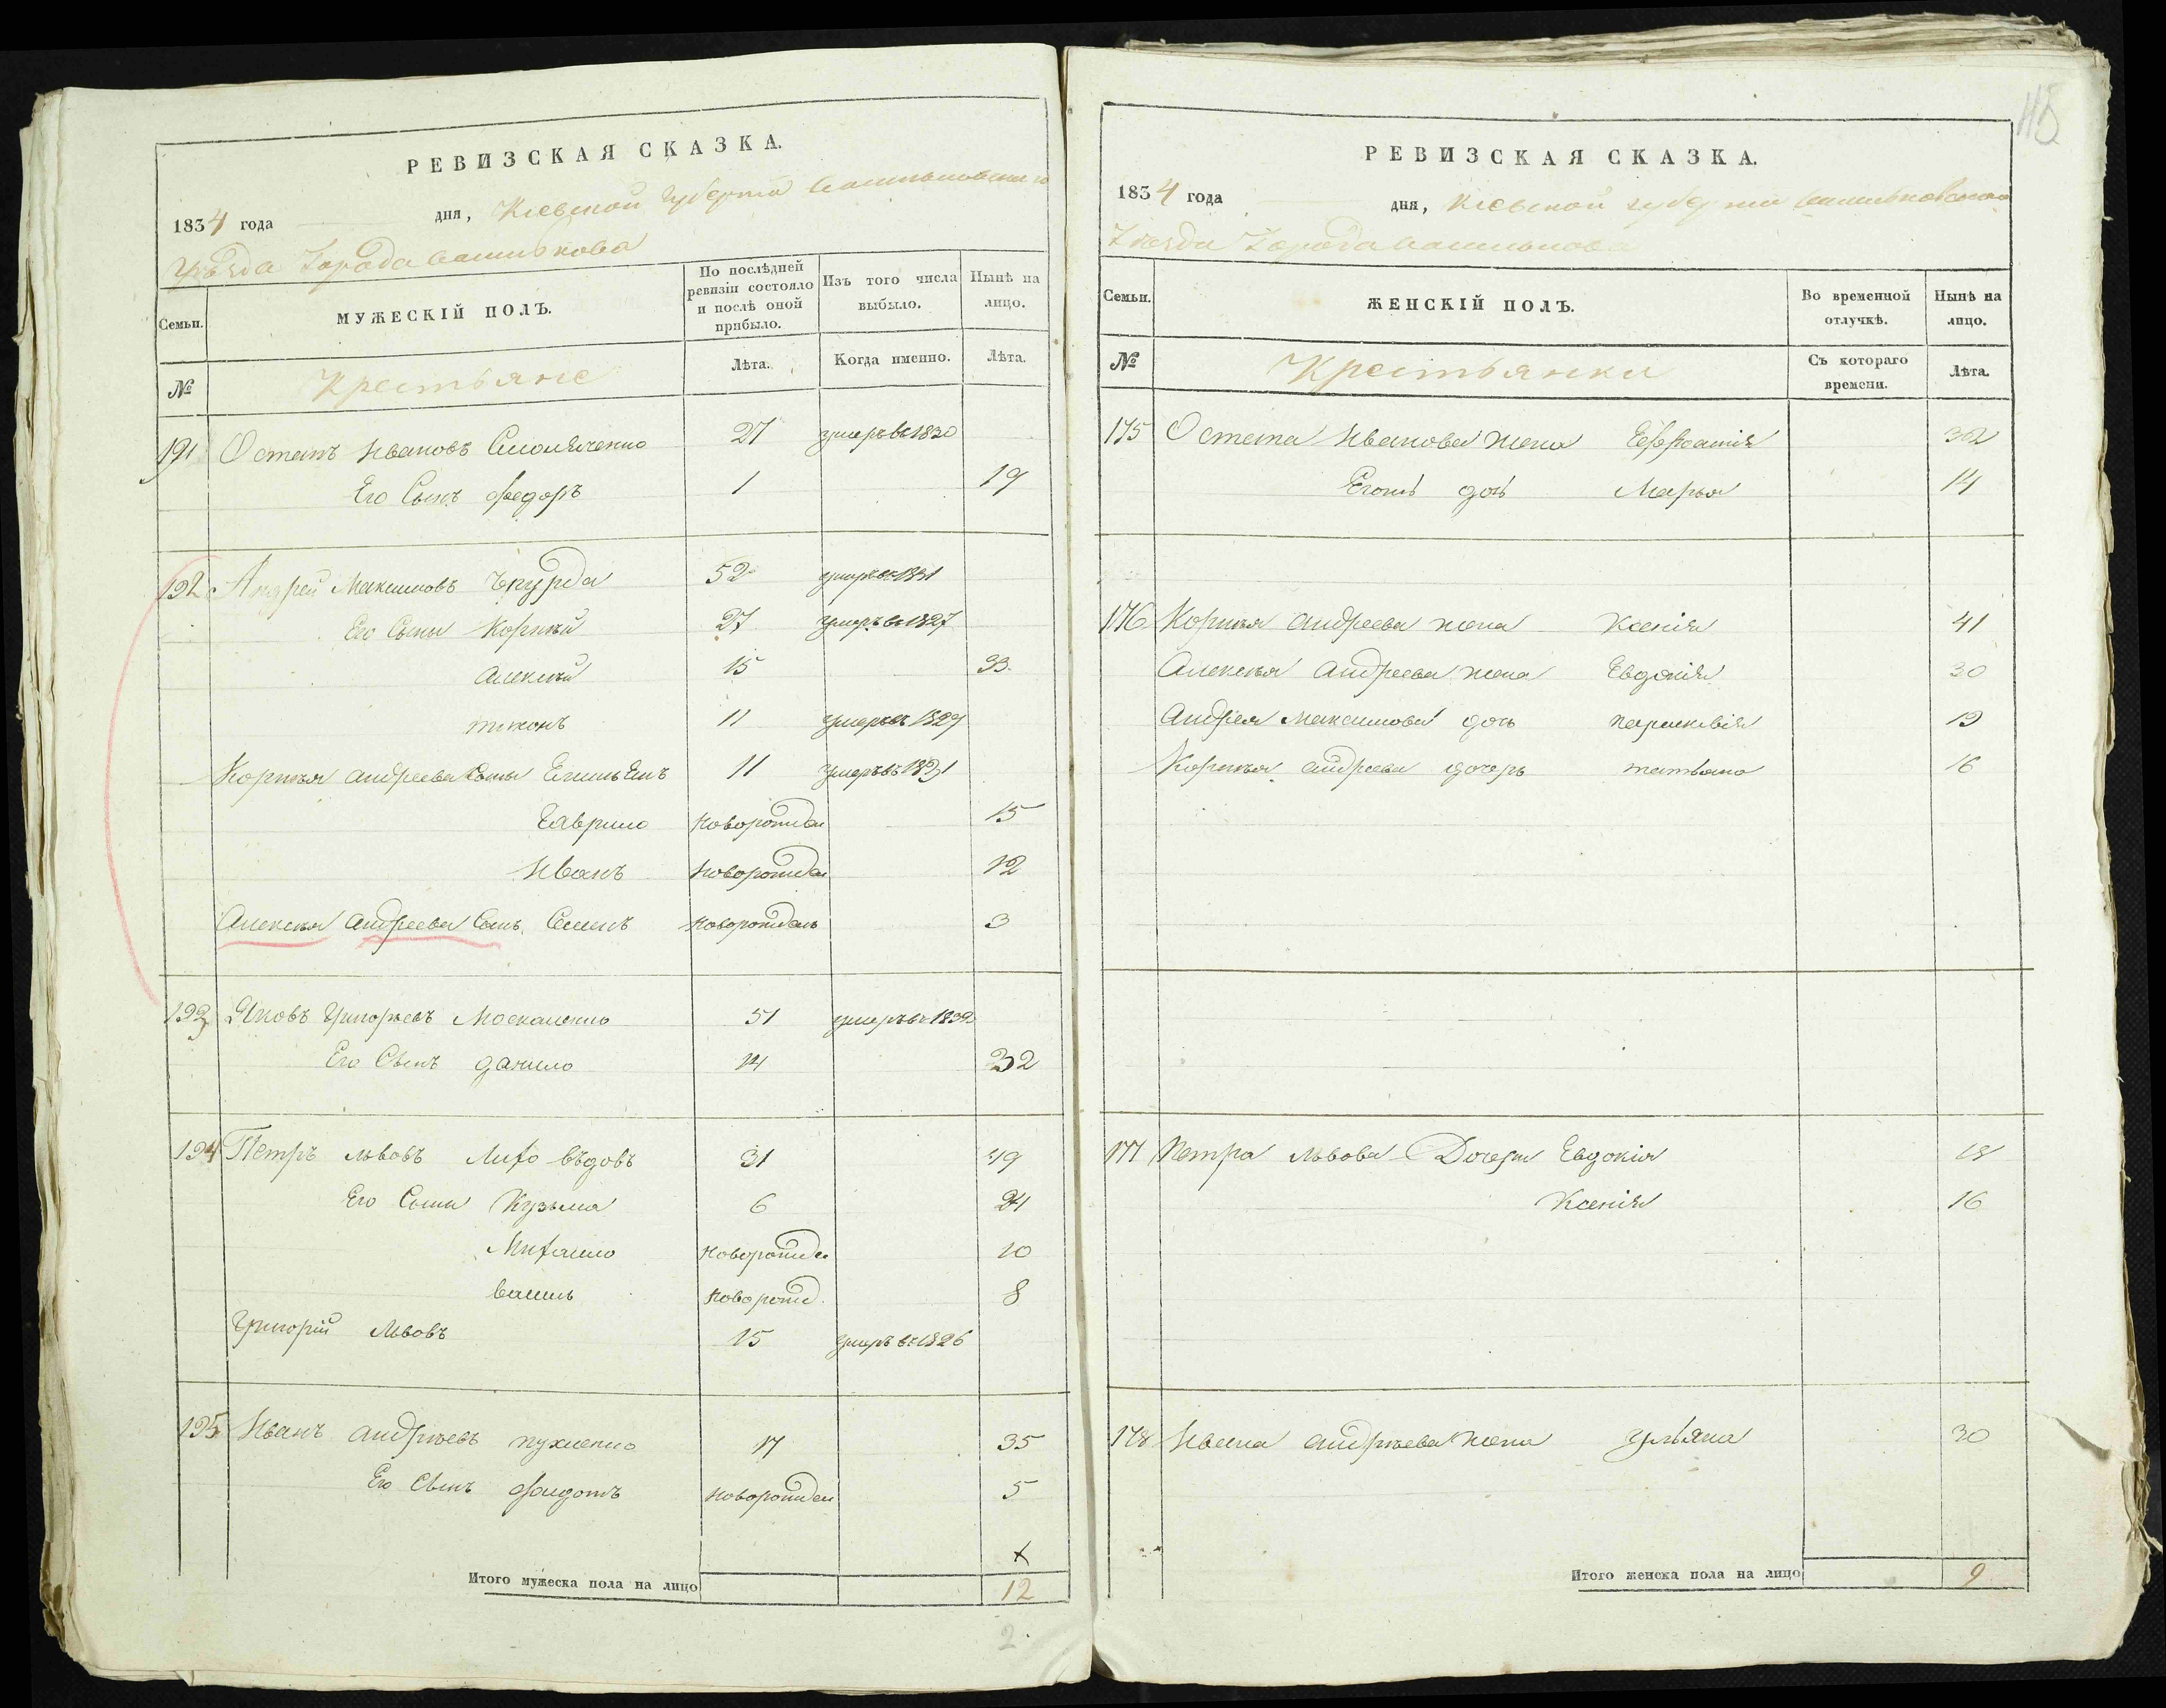 115
РЕВИЗСКАЯ СКАЗКА.
1834 года дня, Кіевской Губерніи Васильковскаго
Уѣзда Города Василькова
Семьи. МУЖЕСКІЙ ПОЛЪ. По послѣдней ревизіи состояло и послѣ оной прибыло. Изъ того числа выбыло. Нынѣ на лицо.
№ Крестьяне Лѣта. Когда именно. Лѣта.
191 Остапъ Ивановъ 27 умеръ въ 1830
Его Сынъ Федоръ 1 19
192 Андрей Максимовъ Чкурда 52 умеръ въ 1831
Его Сыны Корнѣй 27 умеръ въ 1827
Алексѣй 15 33
тихонъ 11 умеръ въ 1829
Корнѣя андреева Сыны 11 умеръ въ 1831
Гаврило Новорожден 15
Иванъ Новорожден 12
Алексѣя андреева Сынъ Семенъ Новорожденъ 3
193 Яковъ Григорьевъ Москаленко 51 умеръ въ 1832
Его Сынъ данило 14 32
194 Петръ львовъ Лиховѣдовъ 31 49
Его Сыны Кузьма 6 24
Михаило Новорожден 10
василь Новорожд. 8
Григорій Львовъ 15 умеръ въ 1826
195 Иванъ андрѣевъ пухленко 17 35
Его Сынъ файдотъ Новорожден 5
х
Итого мужеска пола на лицо 12
2.
РЕВИЗСКАЯ СКАЗКА.
1834 года дня, Кіевской губерніи Васильковскаго
Уѣзда Города Василькова
Семьи. ЖЕНСКІЙ ПОЛЪ. Во временной отлучкѣ. Нынѣ на лицо.
№ Крестьянки Съ котораго времени. Лѣта.
175 Остапа Иванова жена 32
дочь Марья 14
176 Корнѣя андреева жена Ксенія 41
Алексѣя андреева жена Евдокія 30
андрея Максимова дочь параскевія 19
Корнѣя андреева дочерь татьяна 16
177 Петра львова Дочери Евдокія 18
Ксенія 16
178 Ивана андрѣева жена ульяна 30
Итого женска пола на лицо 9